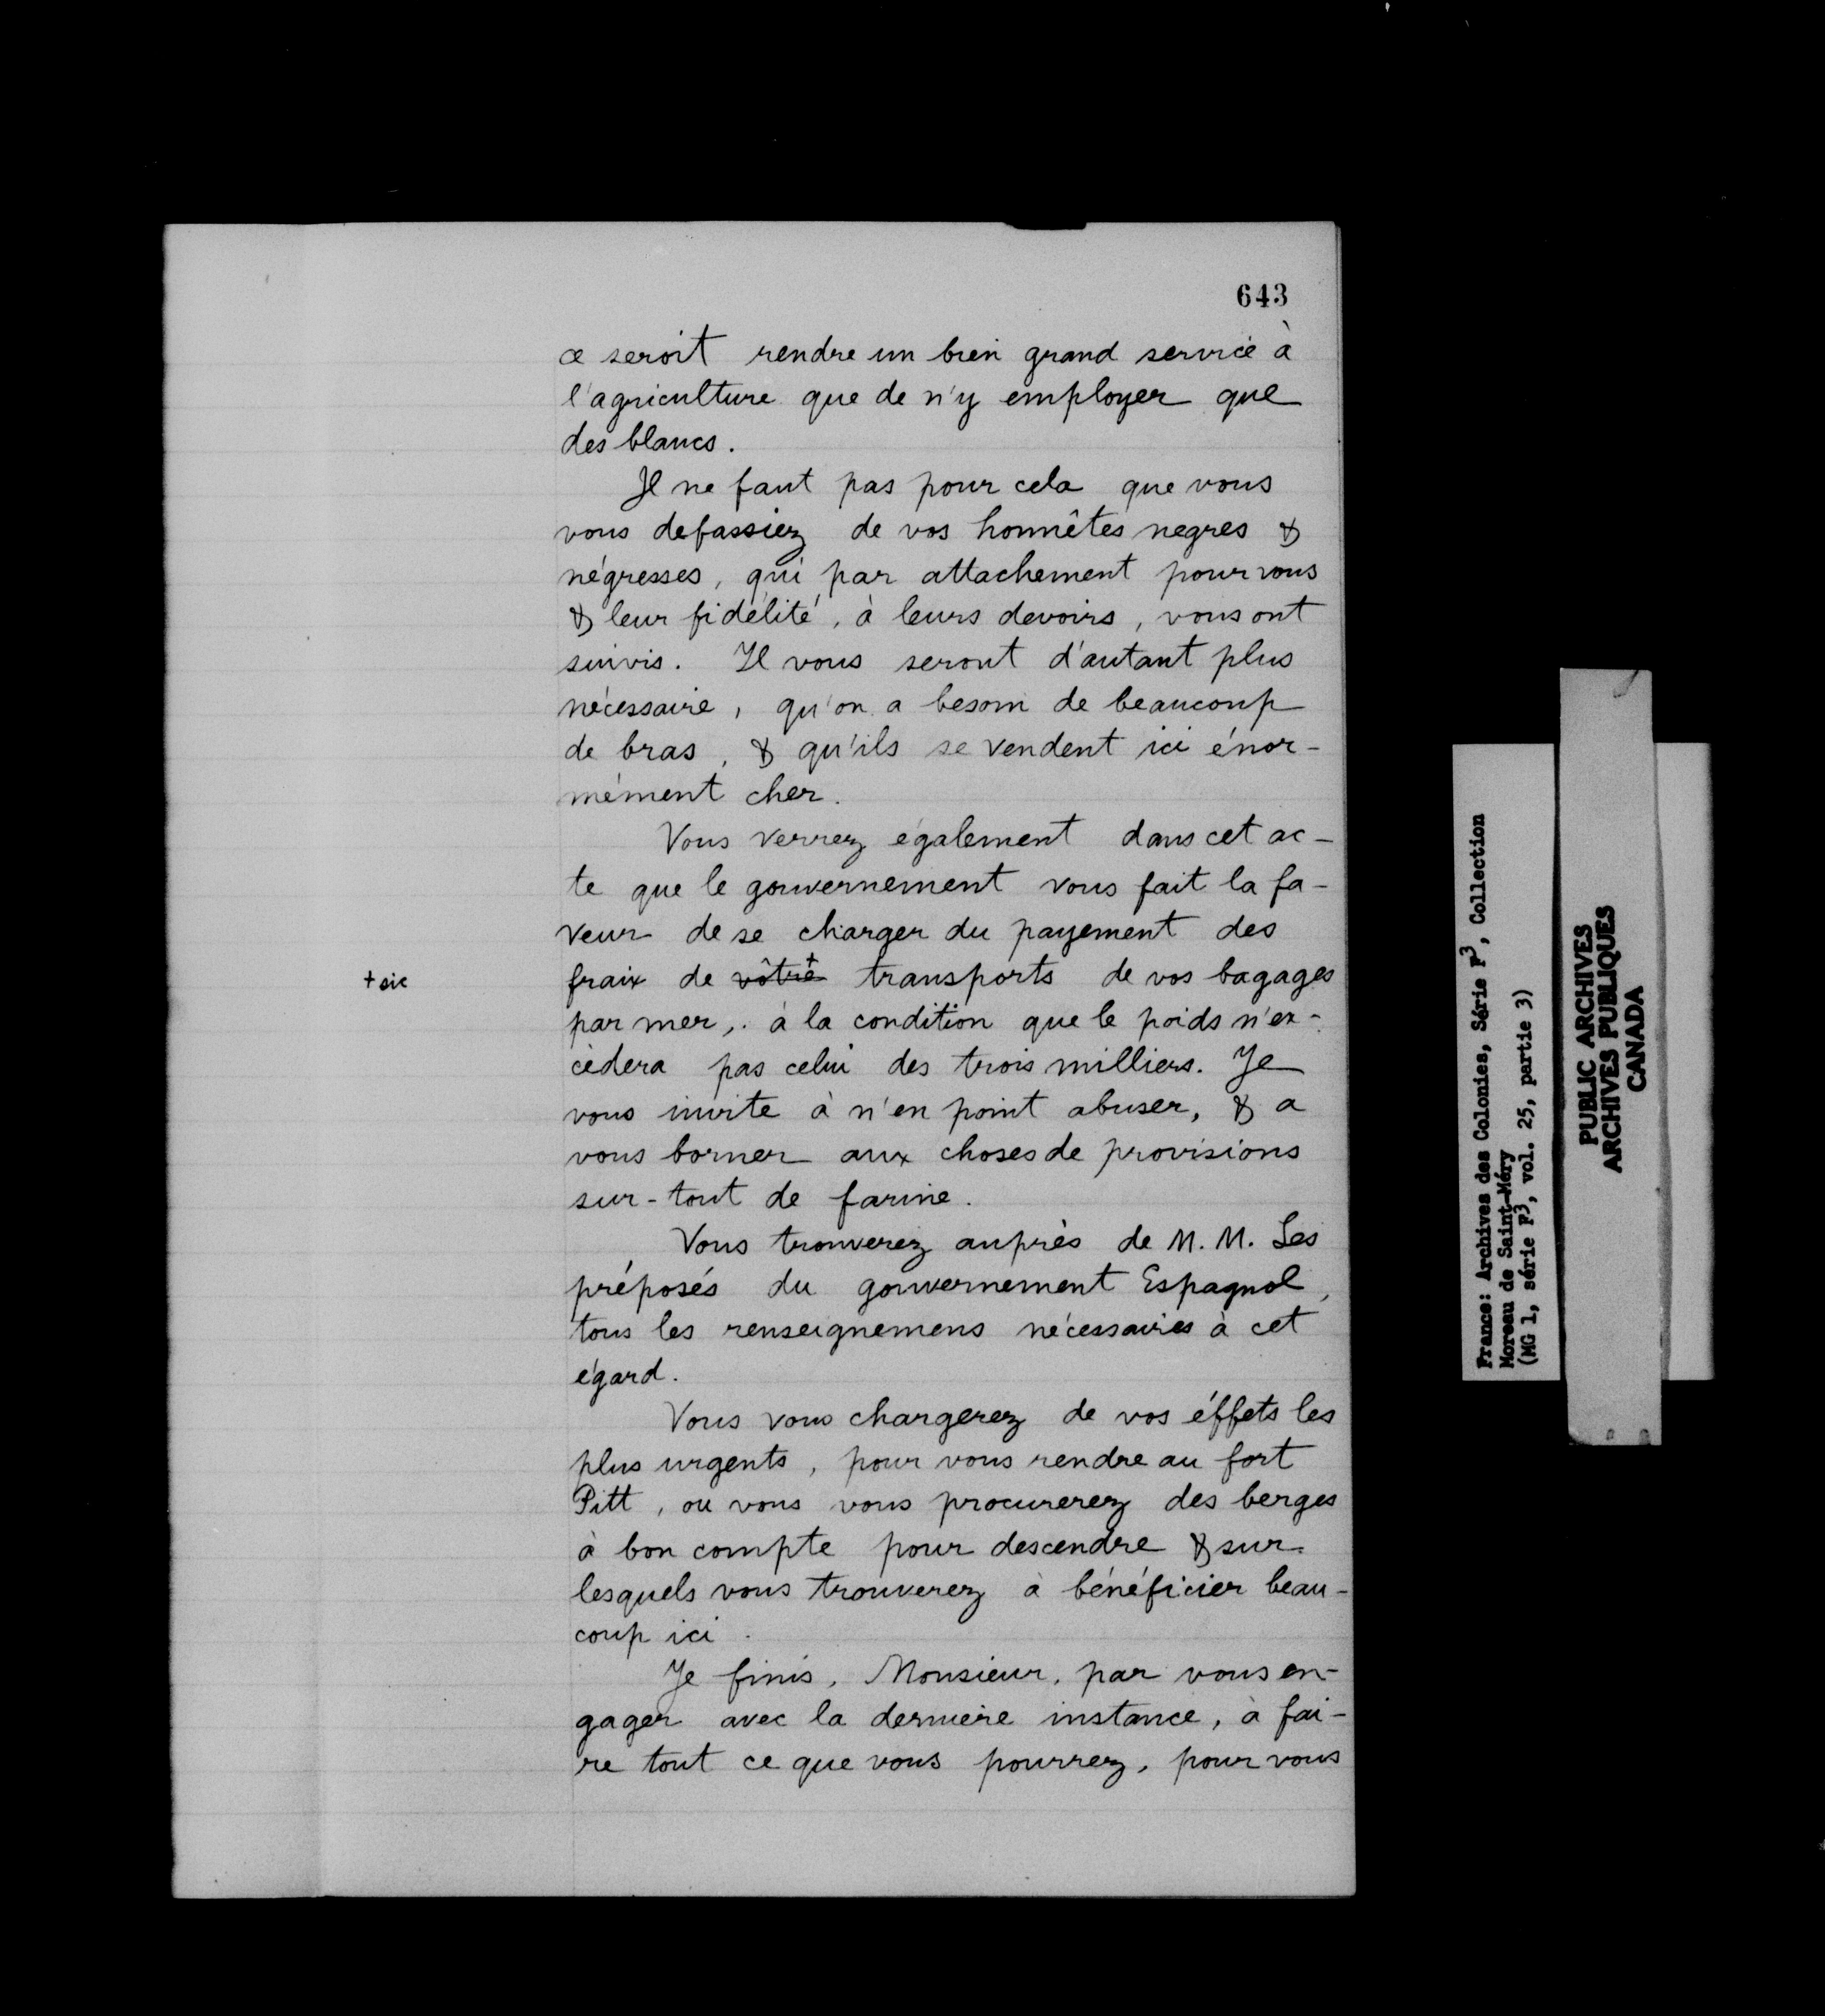 643
ce seroit rendre un bien grand service à
l'agriculture que de n'y employer que
des blancs.
Il ne faut pas pour cela que vous
vous defassiez de vos honnêtes negres &
négresses, qui par attachement pour vous
& leur fidélité, à leurs devoirs, vous ont
suivis. Il vous seront d'autant plus
nécessaire, qu'on a besoin de beaucoup
de bras, & qu'ils se vendent ici énor-
mément cher.
Vous verrez également dans cet ac-
te que le gouvernement vous fait la fa-
veur de se charger du payement des
+ sic
fraix de vôtre + transports de vos bagages
par mer, à la condition que le poids n'ex-
cèdera pas celui des trois milliers. Je
vous invite à n'en point abuser, & a
vous borner aux choses de provisions
sur-tout de farine.
Vous trouverez auprès de M. M. Les
préposés du gouvernement Espagnol,
tous les renseignemens nécessaires à cet
égard.
Vous vous chargerez de vos éffets les
plus urgents, pour vous rendre au fort
Pitt, ou vous vous procurerez des berges
à bon compte pour descendre & sur
lesquels vous trouverez à bénéficier beau-
coup ici.
Je finis, Monsieur, par vous en-
gager avec la derniere instance, à fai-
re tout ce que vous pourrez, pour vous
France: Archives des Colonies, Série F³, Collection
Moreau de Saint-Méry
(MG 1, série F³, vol. 25, partie 3)
PUBLIC ARCHIVES
ARCHIVES PUBLIQUES
CANADA